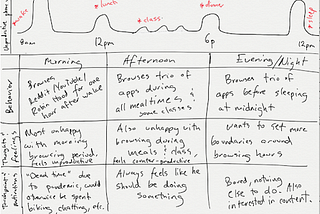 *wake
*lunch
*class
*done
*sleep
8am
12pm
6p
12am
Morning
Afternoon
Evening/Night
Behavior
Browses
Reddit/YouTube/
Robin Hood for one
hour after wake
Browses trio of
apps during
all mealtimes &
some classes
Browses trio of
apps before sleeping
at midnight
Thoughts &
Feelings
Most unhappy
with morning
browsing period.
Feels unproductive
Also unhappy with
browsing during
meals & class.
feels counter-productive
wants to set more
boundaries around
browsing hours
motivations
"Dead time" due
to pandemic, could
otherwise be spent
biking, chatting, etc.
Always feels like
he should be doing
something
Bored, nothing
else to do. Also
interested in content.